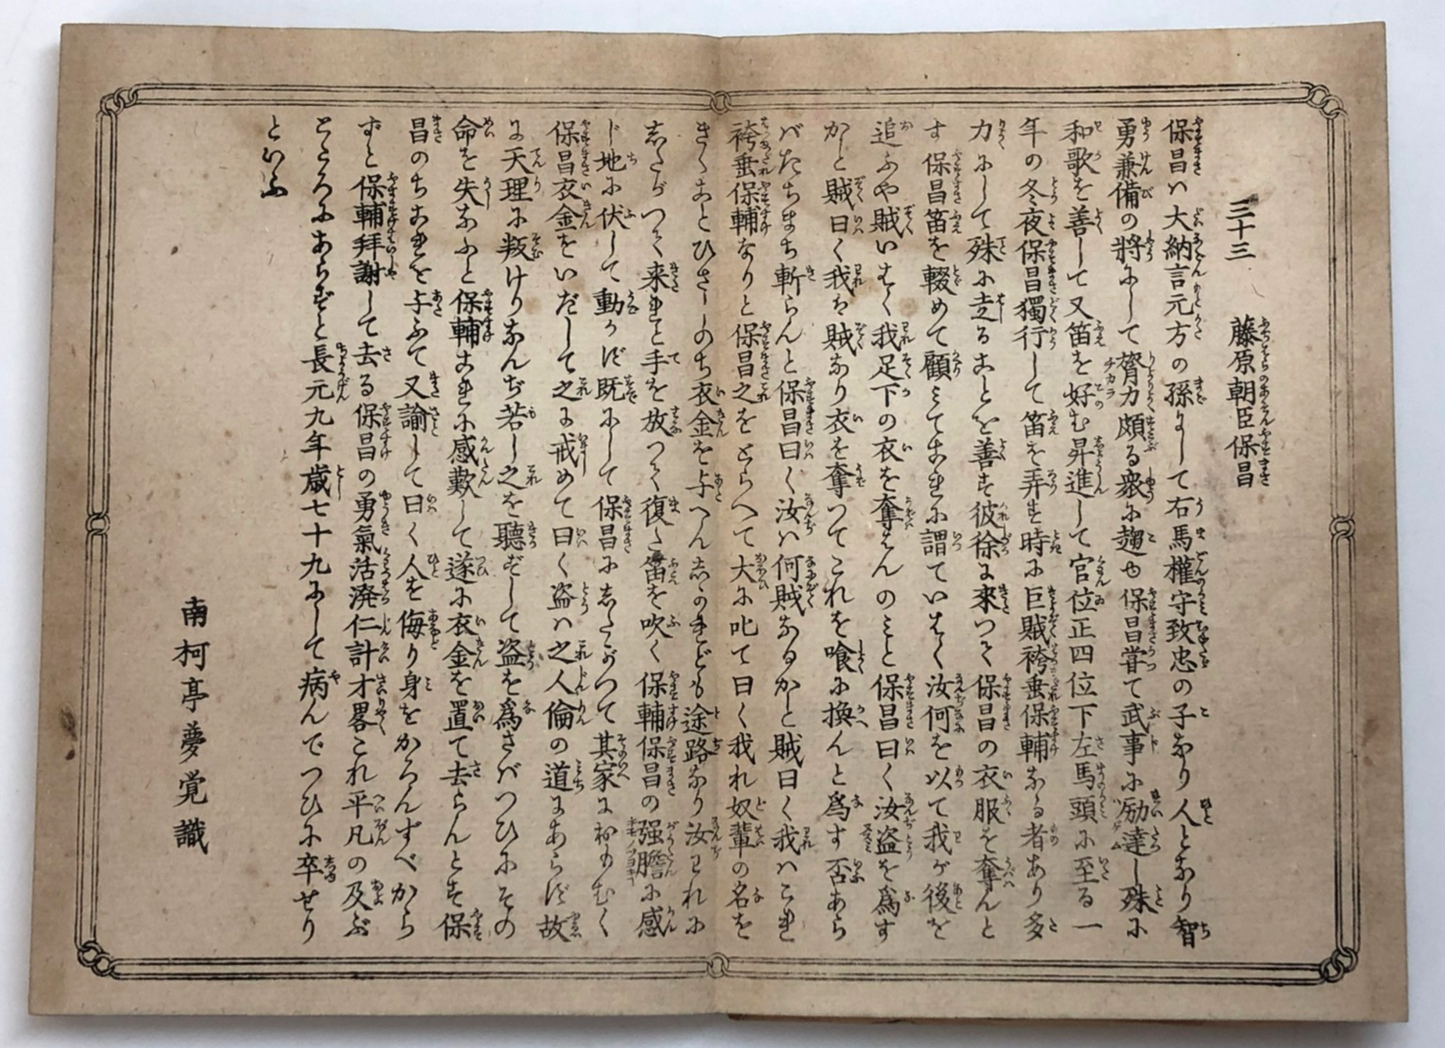 三十三　藤原朝臣保昌
保昌ハ大納言元方の孫にして右馬權守致忠の子なり人となり智
勇兼備の將にして膂力頗る衆に趣也保昌甞て武事に励達し殊に
和歌を善して又笛を好む昇進して官位正四位下左馬頭に至る一
年の冬夜保昌獨行して笛を弄す時に巨賊袴垂保輔なる者あり多
力にして殊に走ることを善す彼徐に來つて保昌の衣服を奪んと
す保昌笛を輟めて顧みてこれに謂ていはく汝何を以て我が後を
追ふや賊いはく我足下の衣を奪はんのミと保昌曰く汝盗を爲す
かと賊曰く我は賊なり衣を奪つてこれを喰に換んと爲す否あら
バたちまち斬らんと保昌曰く汝ハ何賊なるかと賊曰く我ハこれ
袴垂保輔なりと保昌之をとらへて大に叱て曰く我れ奴輩の名を
きくことひさしのち衣金を与へんしかれども途路なり汝われに
したがつて来れと手を放つて復た笛を吹く保輔保昌の强膽に感
じ地に伏して動かず既にして保昌にしたがつて其家におもむく
保昌衣金をいだして之に戒めて曰く盗ハ之人倫の道にあらず故
に天理に叛けりなんぢ若し之を聽ずして盗を爲さバつひにその
命を失なふと保輔これに感歎して遂に衣金を置て去らんとす保
昌のちこれを与ふて又諭して曰く人を侮り身をかろんずべから
ずと保輔拜謝して去る保昌の勇氣活溌仁計才畧これ平凡の及ぶ
ところにあらずと長元九年歳七十九にして病んでつひに卒せり
といふ
南柯亭夢覚識